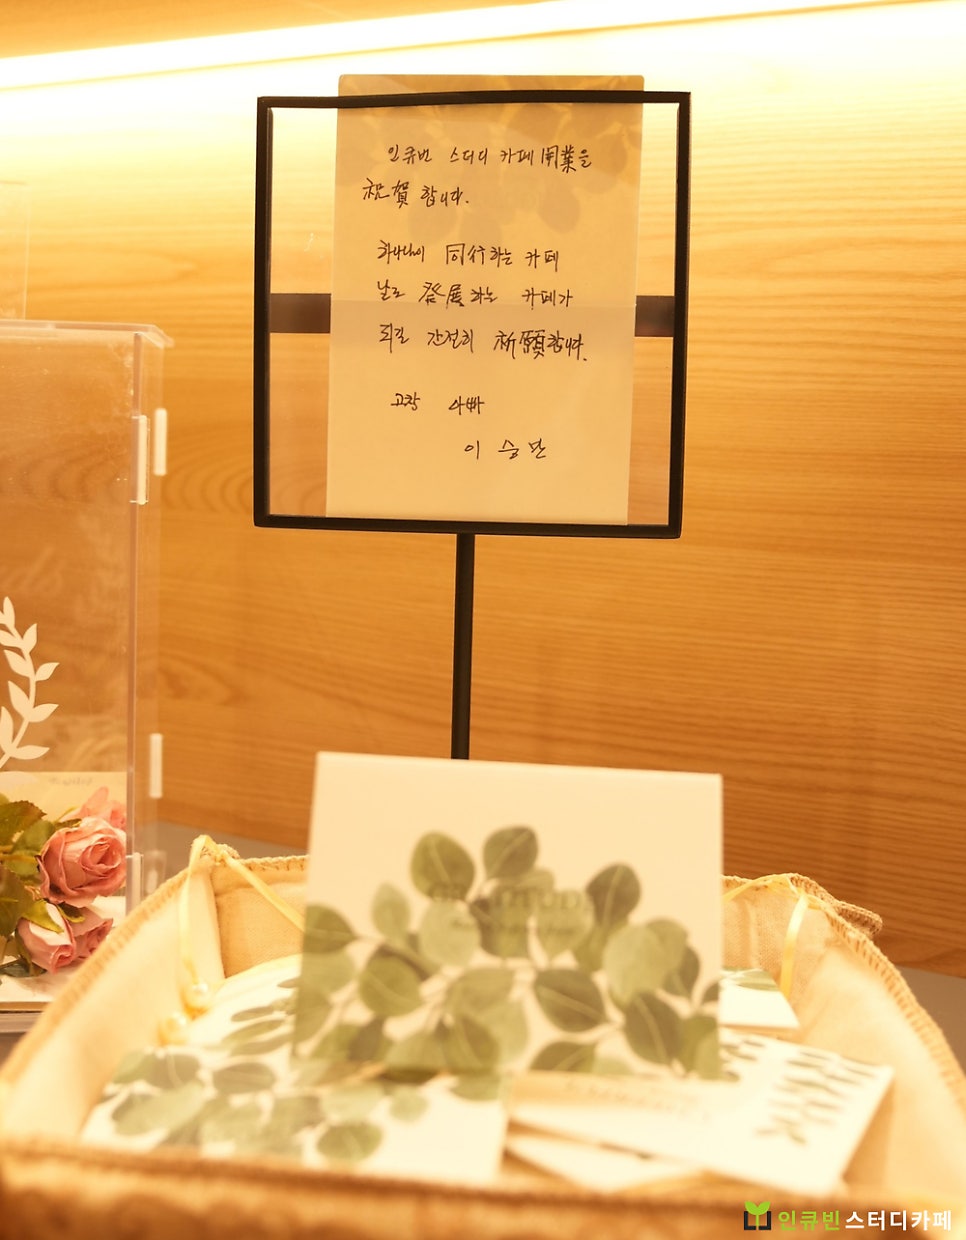 인큐빈 스터디 카페 開業을
祝賀 합니다.
하나님이 同行하는 카페
날로 發展하는 카페가
되길 간절히 祈願합니다.
고창 아빠
이 승 만
GRATITUDE
THANK
인큐빈스터디카페